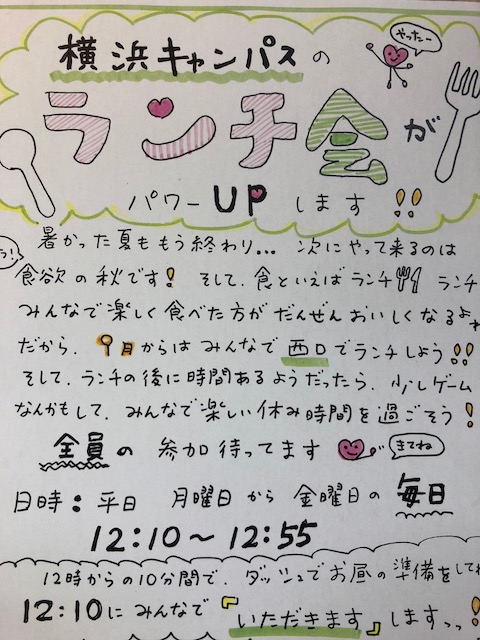 やったー
横浜キャンパスの
ランチ会が
パワーUPします!!
暑かった夏ももう終わり... 次にやって来るのは
食欲の秋です! そして、食といえばランチ ランチ
みんなで楽しく食べた方がだんぜんおいしくなるよね
だから、9月からはみんなで西口でランチしよう!!
そして、ランチの後に時間あるようだったら、少しゲーム
なんかもして、みんなで楽しい休み時間を過ごそう!
全員の参加待ってます きてね
日時:平日 月曜日から金曜日の毎日
12:10〜12:55
12時からの10分間で、ダッシュでお昼の準備をして
12:10にみんなで『いただきます』しますっっ!